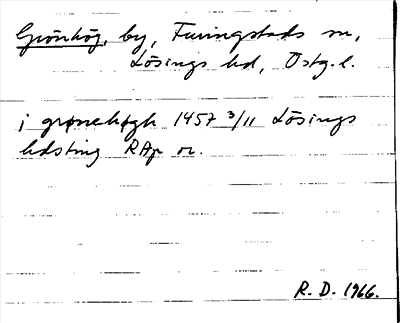 Grönhög, by, Furingstads sn,
Lösings hd, Östg. l.
j grønehøgh 1457 3/11 Lösings
hdsting RAp or.
R. D. 1966.